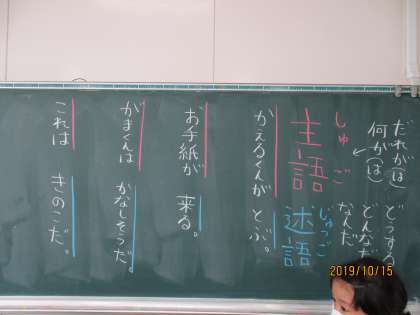 だれが(は) どうする
何が(は) どんなだ
なんだ
しゅご じゅつご
主語 述語
かえるくんが とぶ。
お手紙が 来る。
がまくんは かなしそうだ。
これは きのこだ。
2019/10/15